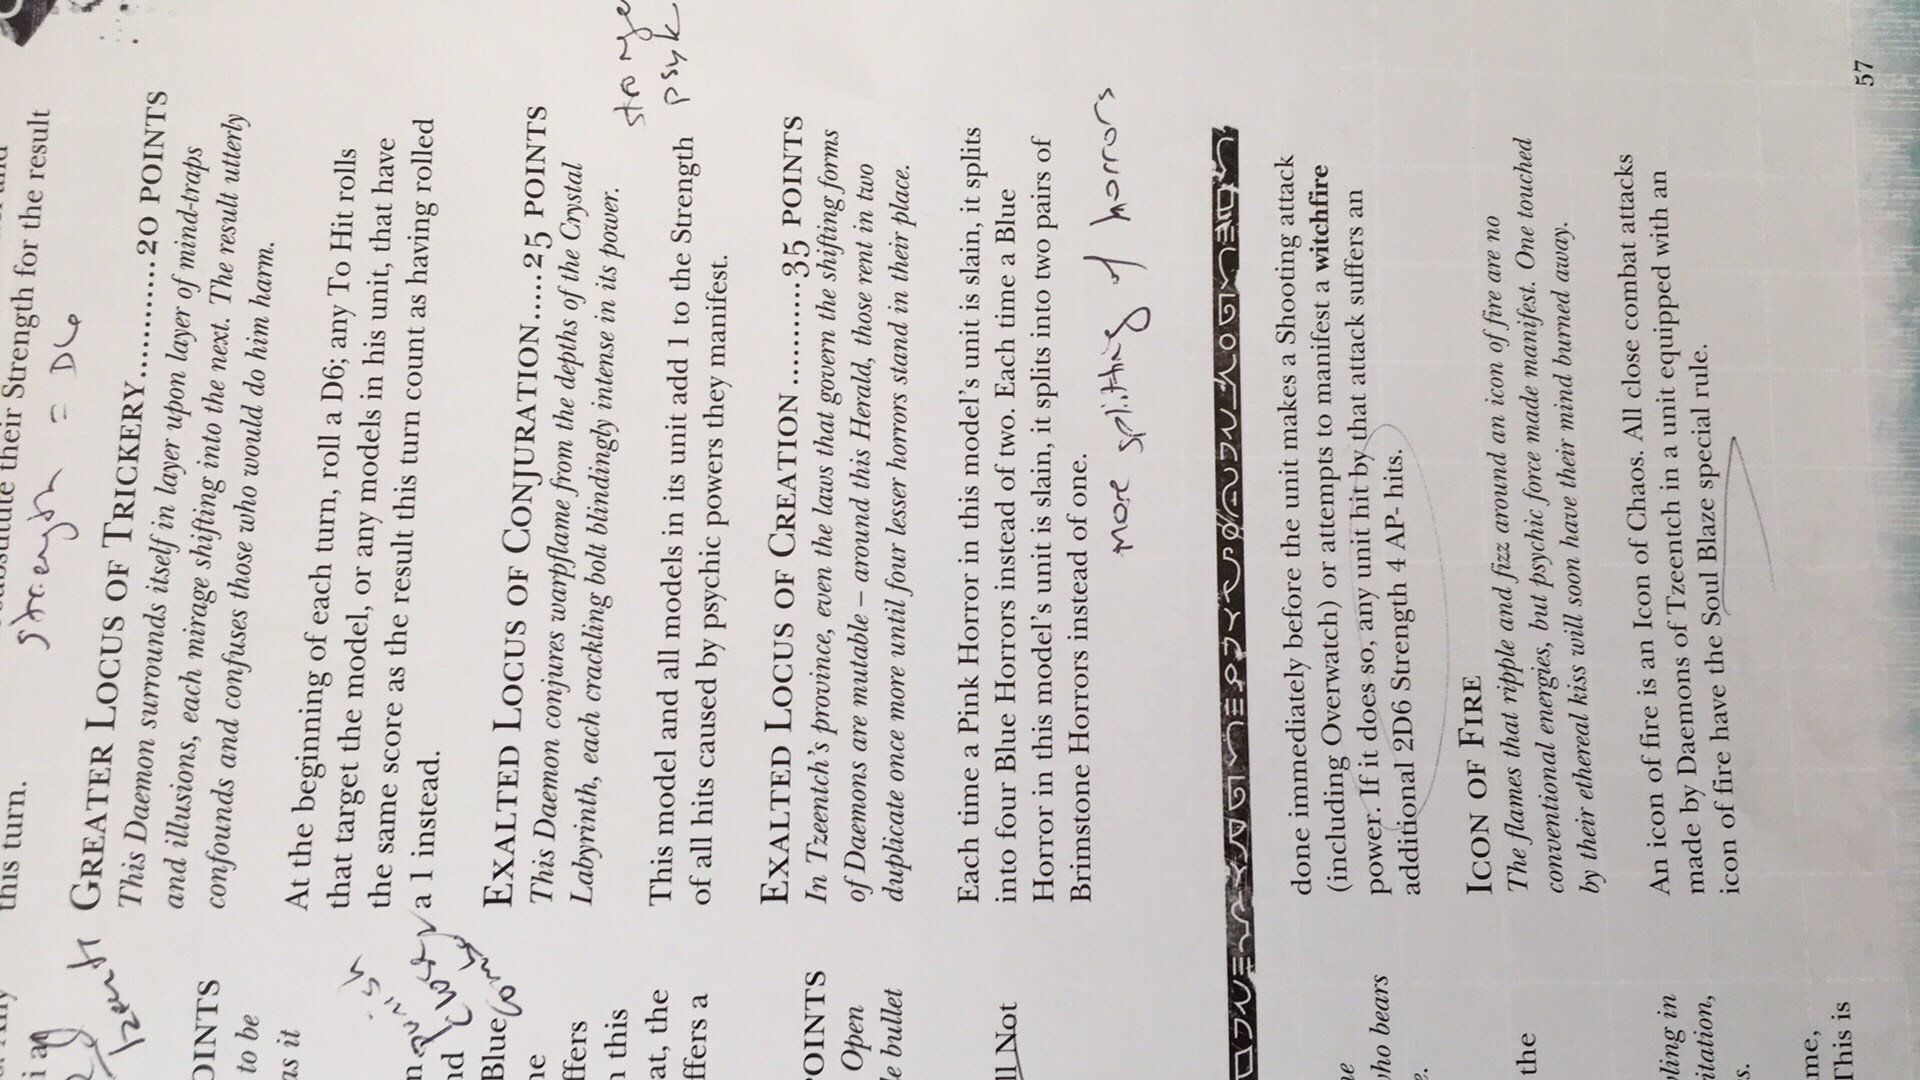 substitute their Strength for the result
this turn.
strength = D6
GREATER LOCUS OF TRICKERY............20 POINTS
This Daemon surrounds itself in layer upon layer of mind-traps
and illusions, each mirage shifting into the next. The result utterly
confounds and confuses those who would do him harm.
At the beginning of each turn, roll a D6; any To Hit rolls
that target the model, or any models in his unit, that have
the same score as the result this turn count as having rolled
a 1 instead.
EXALTED LOCUS OF CONJURATION.....25 POINTS
This Daemon conjures warpflame from the depths of the Crystal
Labyrinth, each crackling bolt blindingly intense in its power.
This model and all models in its unit add 1 to the Strength
of all hits caused by psychic powers they manifest.
EXALTED LOCUS OF CREATION ...........35 POINTS
In Tzeentch's province, even the laws that govern the shifting forms
of Daemons are mutable – around this Herald, those rent in two
duplicate once more until four lesser horrors stand in their place.
Each time a Pink Horror in this model's unit is slain, it splits
into four Blue Horrors instead of two. Each time a Blue
Horror in this model's unit is slain, it splits into two pairs of
Brimstone Horrors instead of one.
more splitting of horrors
done immediately before the unit makes a Shooting attack
(including Overwatch) or attempts to manifest a witchfire
power. If it does so, any unit hit by that attack suffers an
additional 2D6 Strength 4 AP- hits.
ICON OF FIRE
The flames that ripple and fizz around an icon of fire are no
conventional energies, but psychic force made manifest. One touched
by their ethereal kiss will soon have their mind burned away.
An icon of fire is an Icon of Chaos. All close combat attacks
made by Daemons of Tzeentch in a unit equipped with an
icon of fire have the Soul Blaze special rule.
57
POINTS
to be
as it
Blue
this
at, the
POINTS
Open
bullet
Not
bears
the
in
This is